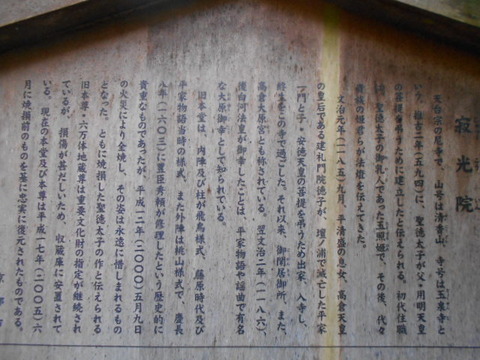 寂光院
天台宗の尼寺で、山号は清香山、寺号は玉泉寺と
いう。推古二年(五九四)に、聖徳太子が父・用明天皇
の菩提を弔うために建立したと伝えられる。初代住職
は、聖徳太子の御乳人であった玉照姫で、その後、代々
貴族の姫君らが法燈を伝えてきた。
文治元年(一一八五)九月、平清盛の息女、高倉天皇
の皇后である建礼門院徳子が、壇ノ浦で滅亡した平家
一門と子・安徳天皇の菩提を弔うため出家、入寺し、
終生をこの寺で過ごした。それ以来、御閑居御所、また、
高倉大原宮とも称されている。翌文治二年(一一八六)、
後白河法皇が御幸したことは、平家物語や謡曲で有名
な大原御幸として知られている。
旧本堂は、内陣及び柱が飛鳥様式、藤原時代及び
平家物語当時の様式、また外陣は桃山様式で、慶長
八年(一六〇三)に豊臣秀頼が修理したという歴史的に
貴重なものであったが、平成十二年(二〇〇〇)五月九日
の火災により全焼し、その姿は永遠に惜しまれるもの
となった。ともに焼損した聖徳太子の作と伝えられる
旧本尊・六万体地蔵尊は重要文化財の指定が継続され
ているが、損傷が甚だしいため、収蔵庫に安置されて
いる。現在の本堂及び本尊は平成一七年(二〇〇五)六
月に焼損前のものを基に忠実に復元されたものである。
京都市